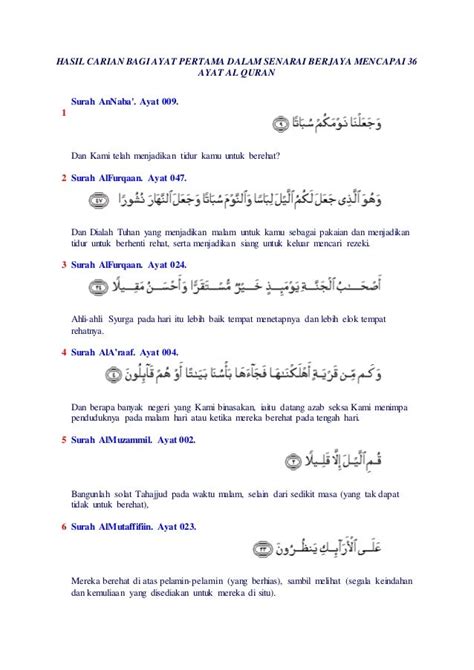 HASIL CARIAN BAGI AYAT PERTAMA DALAM SENARAI BERJAYA MENCAPAI 36
AYAT AL QURAN
Surah AnNaba'. Ayat 009.
1
وَجَعَلْنَا نَوْمَكُمْ سُبَاتًا ﴿٩﴾
Dan Kami telah menjadikan tidur kamu untuk berehat?
2 Surah AlFurqaan. Ayat 047.
وَهُوَ ٱلَّذِى جَعَلَ لَكُمُ ٱلَّيْلَ لِبَاسًا وَٱلنَّوْمَ سُبَاتًا وَجَعَلَ ٱلنَّهَارَ نُشُورًا ﴿٤٧﴾
Dan Dialah Tuhan yang menjadikan malam untuk kamu sebagai pakaian dan menjadikan
tidur untuk berhenti rehat, serta menjadikan siang untuk keluar mencari rezeki.
3 Surah AlFurqaan. Ayat 024.
أَصْحَـٰبُ ٱلْجَنَّةِ يَوْمَئِذٍ خَيْرٌ مُّسْتَقَرًّا وَأَحْسَنُ مَقِيلًا ﴿٢٤﴾
Ahli-ahli Syurga pada hari itu lebih baik tempat menetapnya dan lebih elok tempat
rehatnya.
4 Surah AlA'raaf. Ayat 004.
وَكَم مِّن قَرْيَةٍ أَهْلَكْنَـٰهَا فَجَآءَهَا بَأْسُنَا بَيَـٰتًا أَوْ هُمْ قَآئِلُونَ ﴿٤﴾
Dan berapa banyak negeri yang Kami binasakan, iaitu datang azab seksa Kami menimpa
penduduknya pada malam hari atau ketika mereka berehat pada tengah hari.
5 Surah AlMuzammil. Ayat 002.
قُمِ ٱلَّيْلَ إِلَّا قَلِيلًا ﴿٢﴾
Bangunlah solat Tahajjud pada waktu malam, selain dari sedikit masa (yang tak dapat
tidak untuk berehat),
6 Surah AlMutaffifiin. Ayat 023.
عَلَى ٱلْأَرَآئِكِ يَنظُرُونَ ﴿٢٣﴾
Mereka berehat di atas pelamin-pelamin (yang berhias), sambil melihat (segala keindahan
dan kemuliaan yang disediakan untuk mereka di situ).